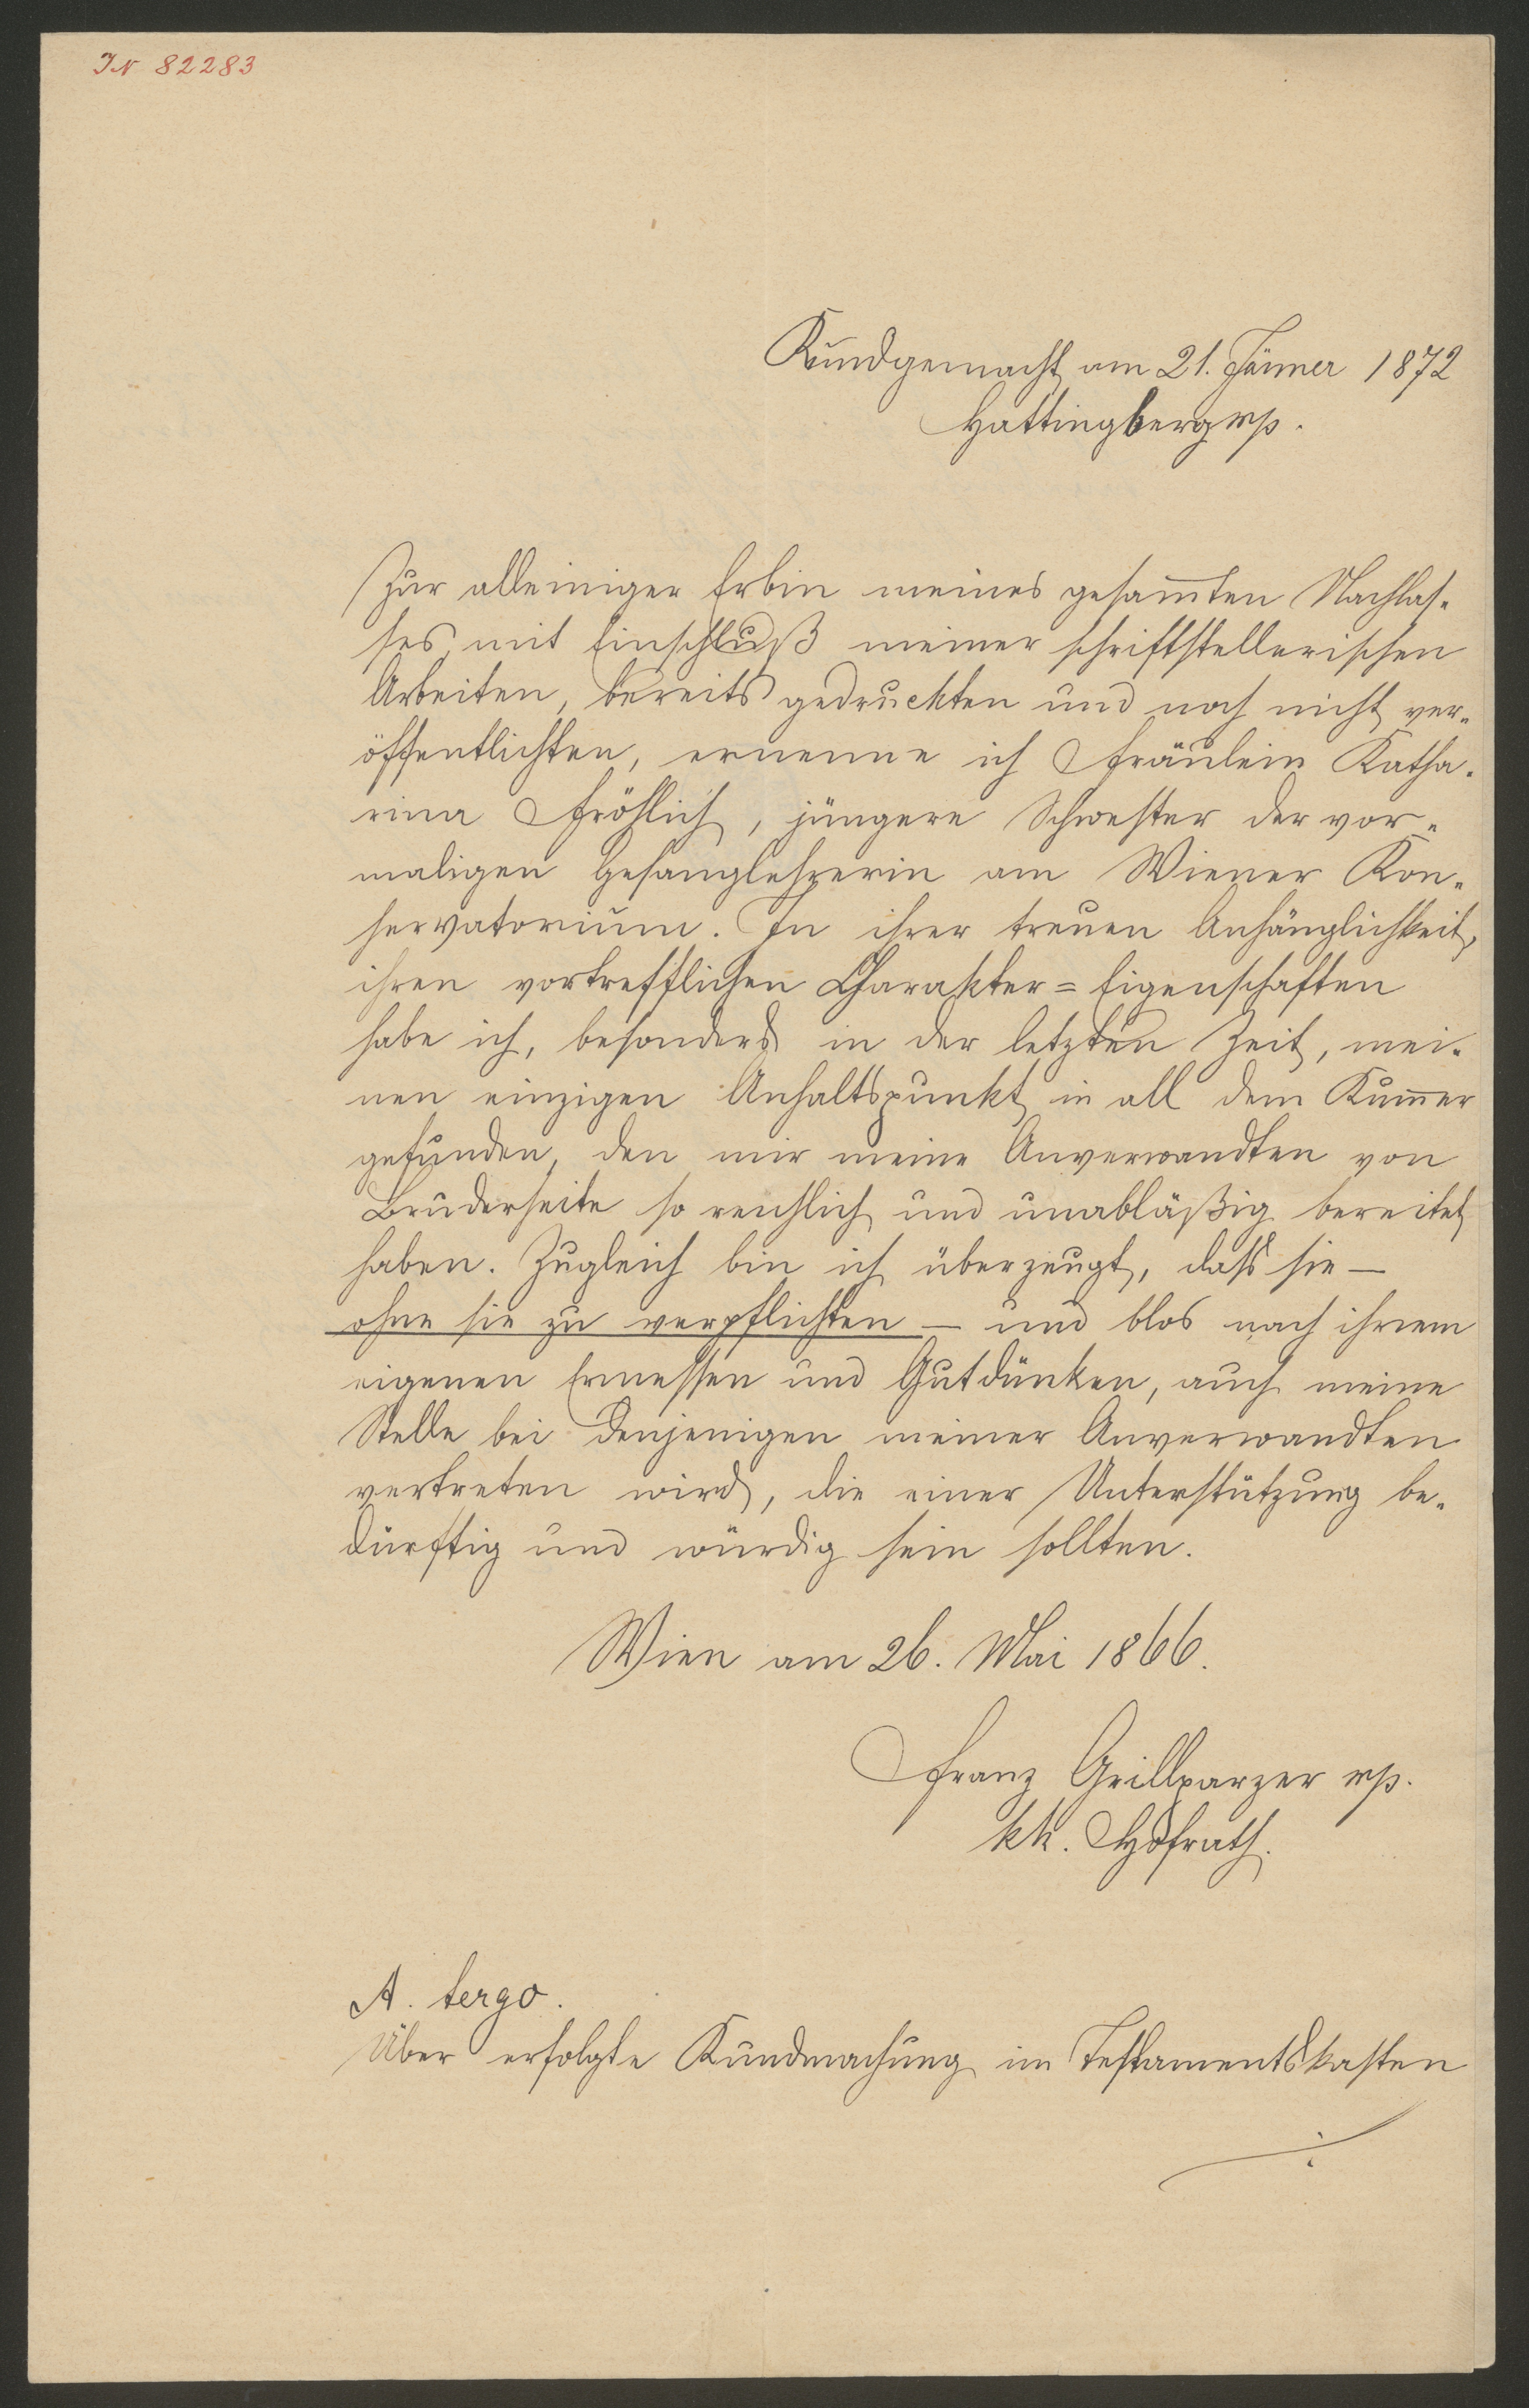 IN 82283
Kundgemacht am 21. Jänner 1872
Hattingberg mp.
Zur alleiniger Erbin meines gesam̅ten Nachlas-
ses, mit Einschluß meiner schriftstellerischen
Arbeiten, bereits gedruckten und noch nicht ver-
öffentlichten, ernenne ich Fräulein Katha-
rina Fröhlich, jüngere Schwester der vor-
maligen Gesanglehrerin am Wiener Kon-
servatorium. In ihrer treuen Anhänglichkeit,
ihren vortrefflichen Charakter=Eigenschaften
habe ich, besonders in der letzten Zeit, mei-
nen einzigen Anhaltspunkt in all dem Kum̅er
gefunden, den mir meine Anverwandten von
Bruderseite so reichlich und unabläßig bereitet
haben. Zugleich bin ich überzeugt, dass sie —
ohne sie zu verpflichten — und blos nach ihrem
eigenen Ermessen und Gutdünken, auch meine
Stelle bei denjenigen meiner Anverwandten
vertreten wird, die einer Unterstützung be-
dürftig und würdig sein sollten.
Wien am 26. Mai 1866.
Franz Grillparzer mp.
kk. Hofrath.
A. tergo.
Über erfolgte Kundmachung im Testamentskasten